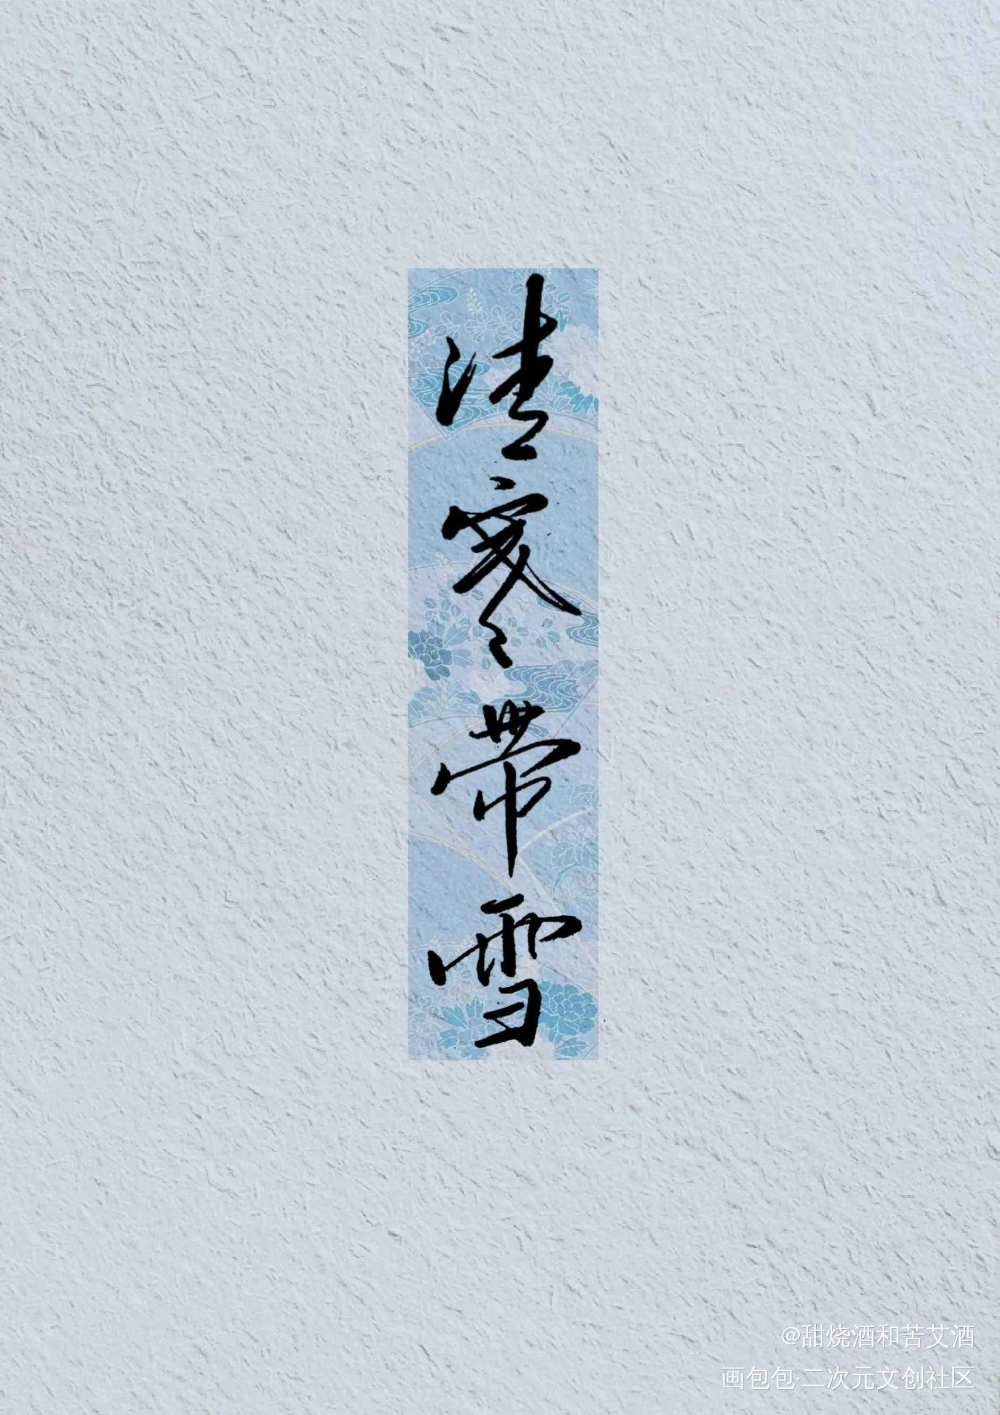 清寒带雪
@甜烧酒和苦艾酒
画包包·二次元文创社区